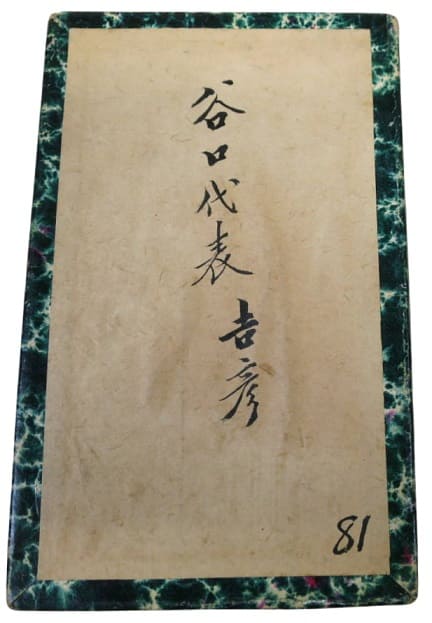 谷口代表吉彦
81